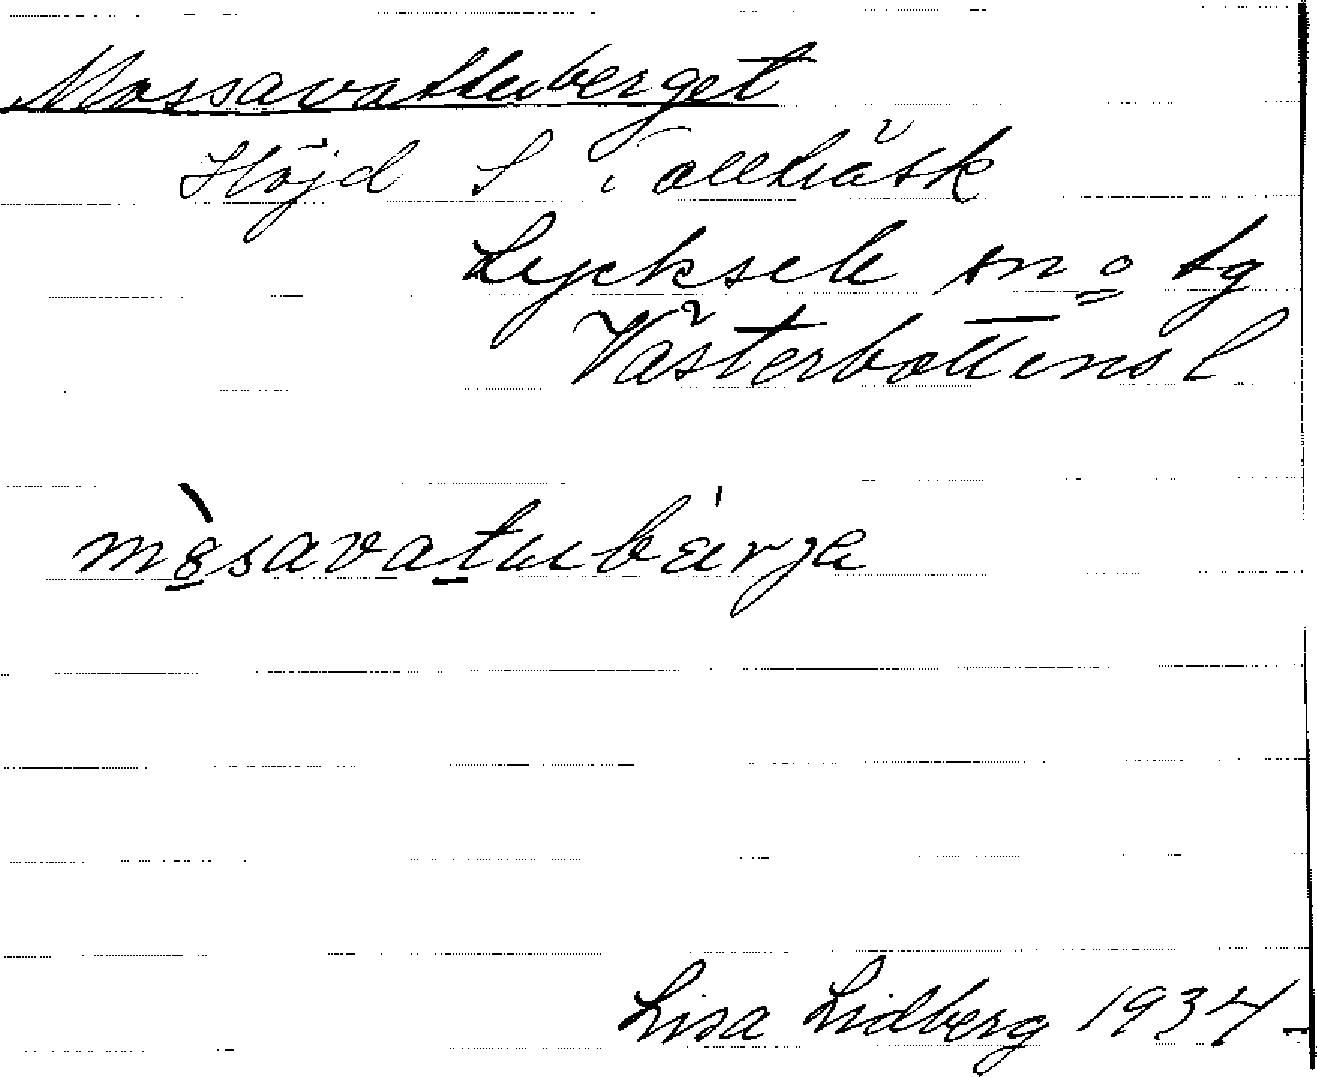 Mossavattuberget
Höjd S Tallträsk
Lycksele sn o tg
Västerbottens l
mòsavatubä'rje
Lisa Lidberg 1934